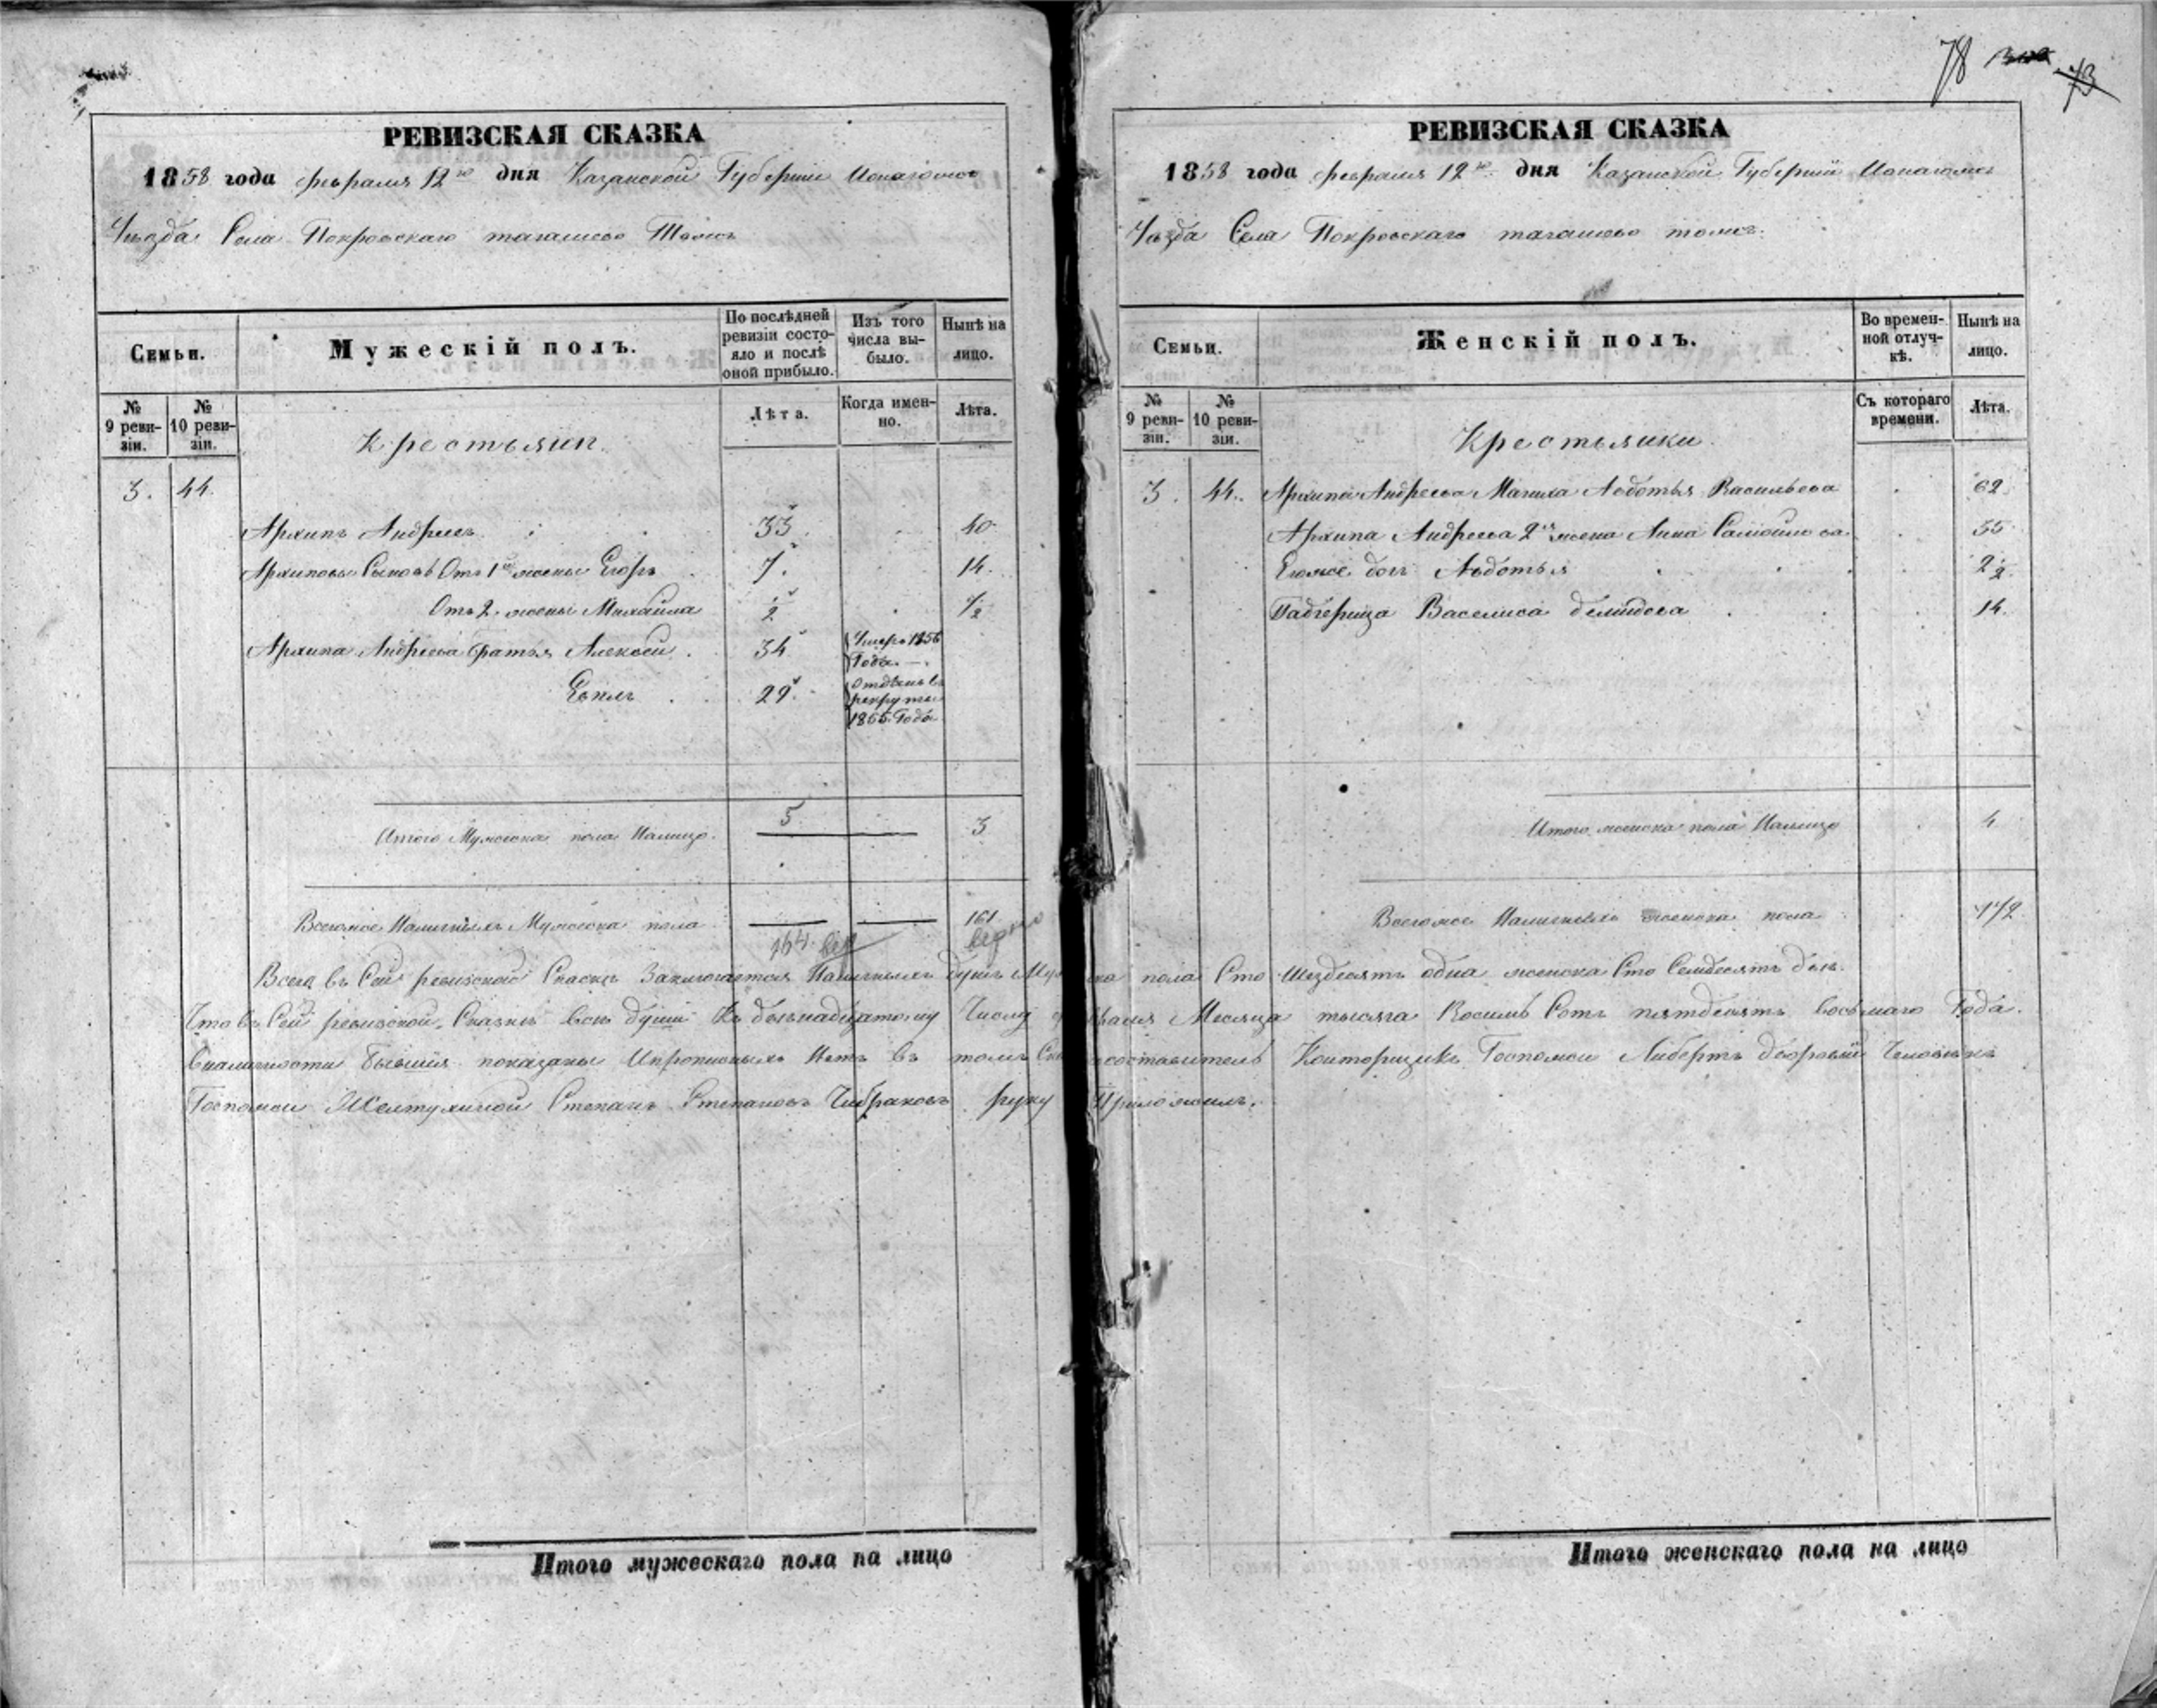 78
73
РЕВИЗСКАЯ СКАЗКА
1858 года февраля 12го дня Казанской Губернии
Уезда Села Покровскаго тагашево
Семьи.
Мужескій полъ.
По послѣдней ревизіи состояло и послѣ оной прибыло.
Изъ того числа выбыло.
Нынѣ на лицо.
№ 9 ревизіи.
№ 10 ревизіи.
Лѣта.
Когда именно.
Лѣта.
Крестьяни.
3. 44.
Архипъ Андреевъ 33 40
Архиповы Сыновья Отъ 1ой жены Егоръ 7. 14.
Отъ 2. жены Михайла ½ ½
Архипа Андреева братья Алексей. 34 Умеръ 1856 Года.
29. Отданъ въ рекруты 1855 Года
5
Итого Мужеска пола Налицо. 3
Всегоже Наличныхъ Мужеска пола 161
164 верно
РЕВИЗСКАЯ СКАЗКА
1858 года февраля 12го дня Казанской Губерніи
Уезда Села Покровскаго тагашево
Семьи.
Женскій полъ.
Во временной отлучкѣ.
Нынѣ на лицо.
№ 9 ревизіи.
№ 10 ревизіи.
Съ котораго времени.
Лѣта.
Крестьянки
3. 44. Архипа Андреева Мачиха Авдотья Васильева 62
Архипа Андреева 2я жена Анна Самойлова 35
Еюже дочь Авдотья 2½
Падчерица Василиса демидова 14.
Итого женска пола Налицо 4
Всегоже Наличныхъ женска пола 172
Всего въ Сей ревизской Сказкѣ Заключается Наличныхъ душъ Мужеска пола Сто Шездесятъ одна женска Сто Семдесятъ две.
Что въ Сей ревизской Сказкѣ все души Къ двенадцатому Числу февраля Месяца тысяча Восимь Сотъ пятдесятъ восьмаго Года.
Вналичности бывшия показаны Ипрописныхъ Нетъ въ томъ составитель Конторщикъ Госпожи Либертъ дворовый Человекъ
Госпожи Желтухиной Степанъ Степановъ Чибраковъ руку Приложилъ.
Итого мужескаго пола на лицо
Итого женскаго пола на лицо